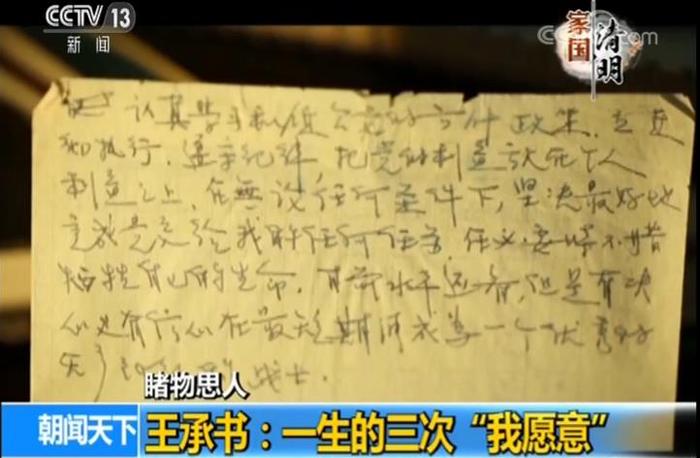 CCTV 13
新闻
家国
清明
com
认真学习 党的方针政策,
和执行,遵守纪律,把党的利益放在个人
利益之上,在無论任何条件下,坚决最好地
完成党交给我的任何任务,必要時不惜
牺牲自己的生命,目前水平还 ,但是有决
心也有信心在最短期 成为一个优秀的
战士.
睹物思人
朝闻天下
王承书：一生的三次“我愿意”